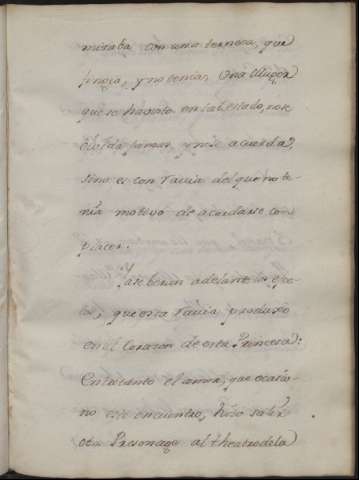 miraba con una terneza, que
fingia, y no tenia, Una Muger
que se ha visto en tal estado, no se
olvida jamas, y no se acuerda,
sino es con ravia del que no te-
nia motivo de acordarse con
placer.
Ya se veran adelante los efec-
tos, que esta ravia produxo
en el Corazon de esta Princesa:
Entretanto el amor, que ocasio-
no este encuentro, hizo salir
otro Personage al theatro de la